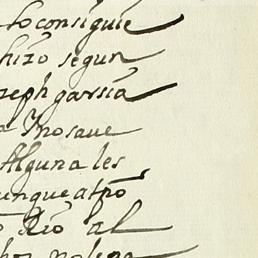 lo consiguie
hizo segun
zeph garsia
a Yno saue
Alguna les
unque atpo
Rio al